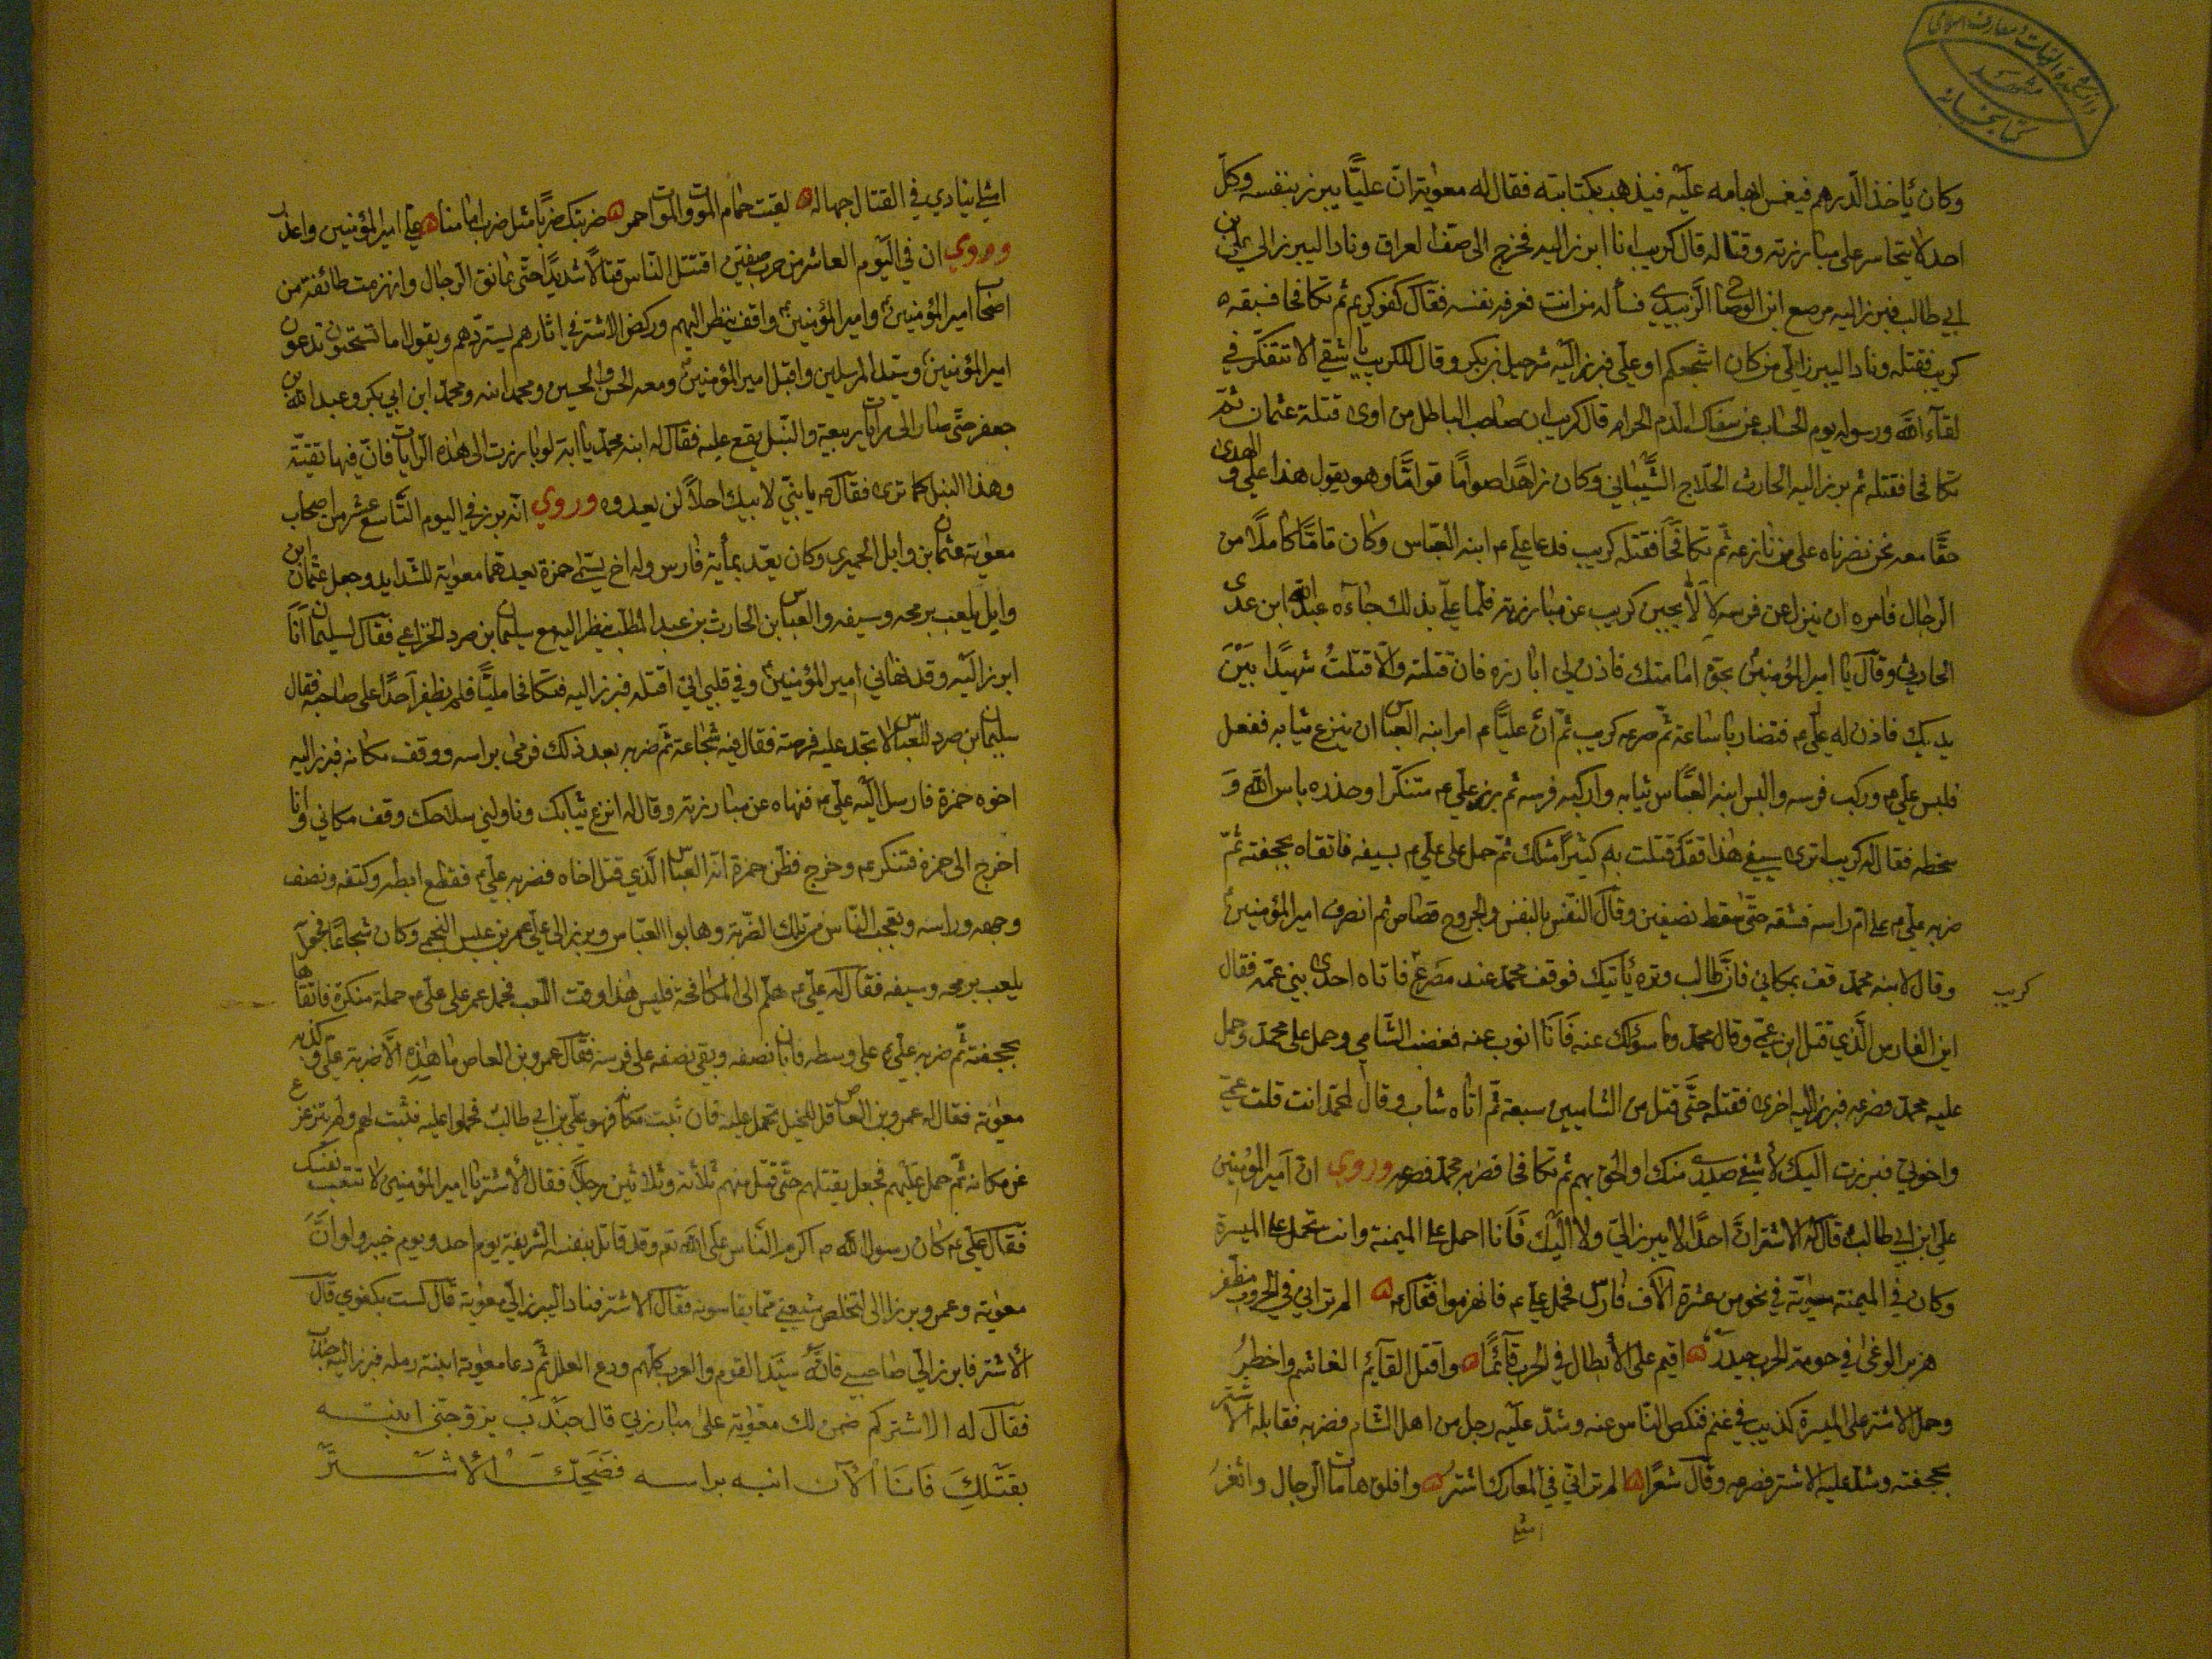 وكان يأخذ الدرهم فيغمس ابهامه عليه فيذهب بكتابته فقال له معوية ان عليًّا يبرز بنفسه وكل
احد لا يتجاسر على مبارزته وقتاله قال كريب انا ابرز اليه فخرج الى صف العراق ونادا ليبرز الي علي بن
ابي طالب فبرز اليه مرصع ابن الوضاح الزبيدي فسأله من انت فعرفه نفسه فقال كفو كريم ثم تكافحا فسبقه
كريب فقتله ونادا ليبرز الي من كان اشجعكم او علي فبرز اليه شرحبيل بن بكر وقال لكريب يا شقي الا تتفكر في
لقاء الله ورسوله يوم الحساب عن سفك الدم الحرام قال كريب ان صاحب الباطل من اوى قتلة عثمان ثم
تكافحا فقتله ثم برز اليه الحارث الحلاج الشيباني وكان زاهدًا صوامًا قوامًّا وهو يقول هذا علي والهدى
حقًّا معه نحن نصرناه على من نازعه ثم تكافحًا فقتله كريب فدعا علي ع ابنه العباس وكان تامًّا كاملًا من
الرجال فامره ان ينزل عن فرسه لأن لا يجبن كريب عن مبارزته فلما علي بذلك جاءه عبد الله ابن عدى
الحارثي وقال يا امير المؤمنين بحق امامتك فاذن لي ابارزه فان قتلته والا قتلتُ شهيدًا بَيْنَ
يديك فاذن له علي ع فتضاربا ساعة ثم صرعه كريب ثم ان عليًّا ع امر ابنه العباس ان ينزع ثيابه ففعل
فلبس علي ع وركب فرسه والبس ابنه العبَّاس ثيابه واركبه فرسه ثم برز علي ع متنكرا وحذره باس الله وَ
سخطه فقال له كريب اترى سيفي هذا فقد قتلت به كثيرًا مثلك ثم حمل على علي ع بسيفه فاتقاه بحجفته ثم
ضربه علي ع على ام راسه فشقه حتى سقط نصفين وقال النفس بالنفس والجروح قصاص ثم انصرف امير المؤمنين ع
وقال لابنه محمد قف بمكاني فانَّ طالب وتره يأتيك فوقف محمد عند مصرع فاتاه احدى بني عمه فقال
كريب
اين الفارس الَّذي قتل ابن عمّي وقال محمد وما سؤلك عنه فَاَنَا انوب عنه فغضب الشامي وحمل على محمد وحمل
عليه محمد فصرعه فبرز اليه اخرى فقتله حتَّى قتل من الشاميين سبعة ثم اتاه شاب وقال لمحمد انت قتلت عمي
واخوتي فبرزت اليك لأشفي صدري منك او الحق بهم ثم تكافحا فضربه محمد فصرعه وروي ان امير المؤمنين
علي ابن ابي طالب ع قال له الاشتر انَّ احدًا لا يبرز الي ولا اليك فَاَنَا احمل على الميمنة وانت تحمل على الميسرة
وكان في الميمنة معوية في نحو من عشرة الاف فارس فحمل علي ع فانهزموا فقال ع الم تر ابي في الحروب مظفر
هزبر الوغى في حومة الحرب حيدر اقيم على الأبطال في الحرب قائمًا واقتل القايم الغاشم واخطرُ
وحمل الاشتر على الميسرة كذيب في غنم فنكص الناس عنه وشدّ عليه رجل من اهل الشام فضربه فقابله الاشتر
بحجفته وشد عليه الاشتر فصرعه وقال شعرًا الم تر انّي في المعارك اشترُ وافلق هامات الرجال واثغرُ
امثلي
امثلي ينادي في القتال جهاله لقيت حمام الموت والموت احمر ضربتك ضربًا مثل ضرب امامنا علي امير المؤمنين واعذر
وروي ان في اليوم العاشر من حرب صفين اقتتل الناس قتالًا شديدًا حتى عانق الرجال وانهزمت طائفة من
اصحاب امير المؤمنين ع وامير المؤمنين ع واقف ينظر اليهم وركض الاشتر في اثارهم يستردهم ويقول اما تستحيون تدعون
امير المؤمنين ع وسيد المرسلين واقبل امير المؤمنين ع ومعه الحسن والحسين ومحمد ابنه ومحمد ابن ابي بكر وعبد الله بن
جعفر حتى صار الى رايات ربيعة والنبل يقع عليه فقال له ابنه محمد يا ابة لو بارزت الى هذه الرايات فان فيها تقيّة
وهذا النبل كما ترى فقال ع يا بنيّ لابيك اجلاً لن يعدوه وروي انه برز في اليوم التاسع عشر من اصحاب
معوية عثمان بن وايل الحميري وكان يعد بمأية فارس وله اخ يسمى حمزة يعدهما معوية للشدايد وجعل عثمان ابن
وايل يلعب برمحه وسيفه والعباس بن الحارث بن عبد المطلب ينظر اليه مع سليمان بن صرد الخزاعي فقال لسليمان اَنَا
ابرز اليه وقد نهاني امير المؤمنين ع وفي قلبي اني اقتله فبرز اليه فتكافحا مليًّا فلم يظفر احدًا على صاحبه فقال
سليمان بن صرد للعباس الا تجد عليه فرصة فقال فيه شجاعة ثم ضربه بعد ذلك فرمى براسه ووقف مكانه فبرز اليه
اخوه حمزة فارسل اليه علي ع فنهاه عن مبارزته وقال له انزع ثيابك وناولني سلاحك وقف مكاني وانا
اخرج الى حمزة فتنكر ع وخرج فظن حمزة انه العباس الَّذي قتل اخاه فضربه علي ع فقطع ابطه وكتفه ونصف
وجهه وراسه وتعجب الناس من تلك الضربة وهابوا العباس وبرز الى علي عمر بن عبس النجمي وكان شجاعًا فجعل
يلعب برمحه وسيفه فقال له علي ع هلم الى المكافحة فليس هذا وقت اللعب فحمد عمر على علي ع حملة منكرة فاتقاها
بحجفته ثم ضربه علي ع على وسطه فابان نصفه وبقي نصفه على فرسه فقال عمرو بن العاص ما هذه الا ضربة علي وكذبه
معوية فقال له عمرو بن العاص قل للخيل تحمل عليه فان ثبت مكانه فهو علي بن ابي طالب فحملوا عليه فثبت لهم ولم يتزعزع
عن مكانه ثم حمل عليهم فجعل يقتلهم حتى قتل منهم ثلاثة وثلاثين رجلًا فقال الأشتر يا امير المؤمنين لا تتعب نفسك
فقال علي ع كان رسول الله ص اكرم الناس على الله تعه وقد قاتل بنفسه الشريفة يوم احد ويوم خيبر ولو انَّ
معوية وعمرو برزا الى لتخلص شيعتي مما يقاسونه فقال الاشتر فنادا ليبرز الي معوية قال لست بكفوي قال
الأشتر فابرز الي صاحبي فانه سيّد القوم والعرب كلهم ودع العلل ثم دعا معوية ابنته رمله فبرز اليه جندب
فقال له الاشتر كم ضمن لك معوية على مبارزتي قال جندب يزوجني ابنته
بقتلك فَاَنَا الآن اتيه براسه فضحك الأشتر